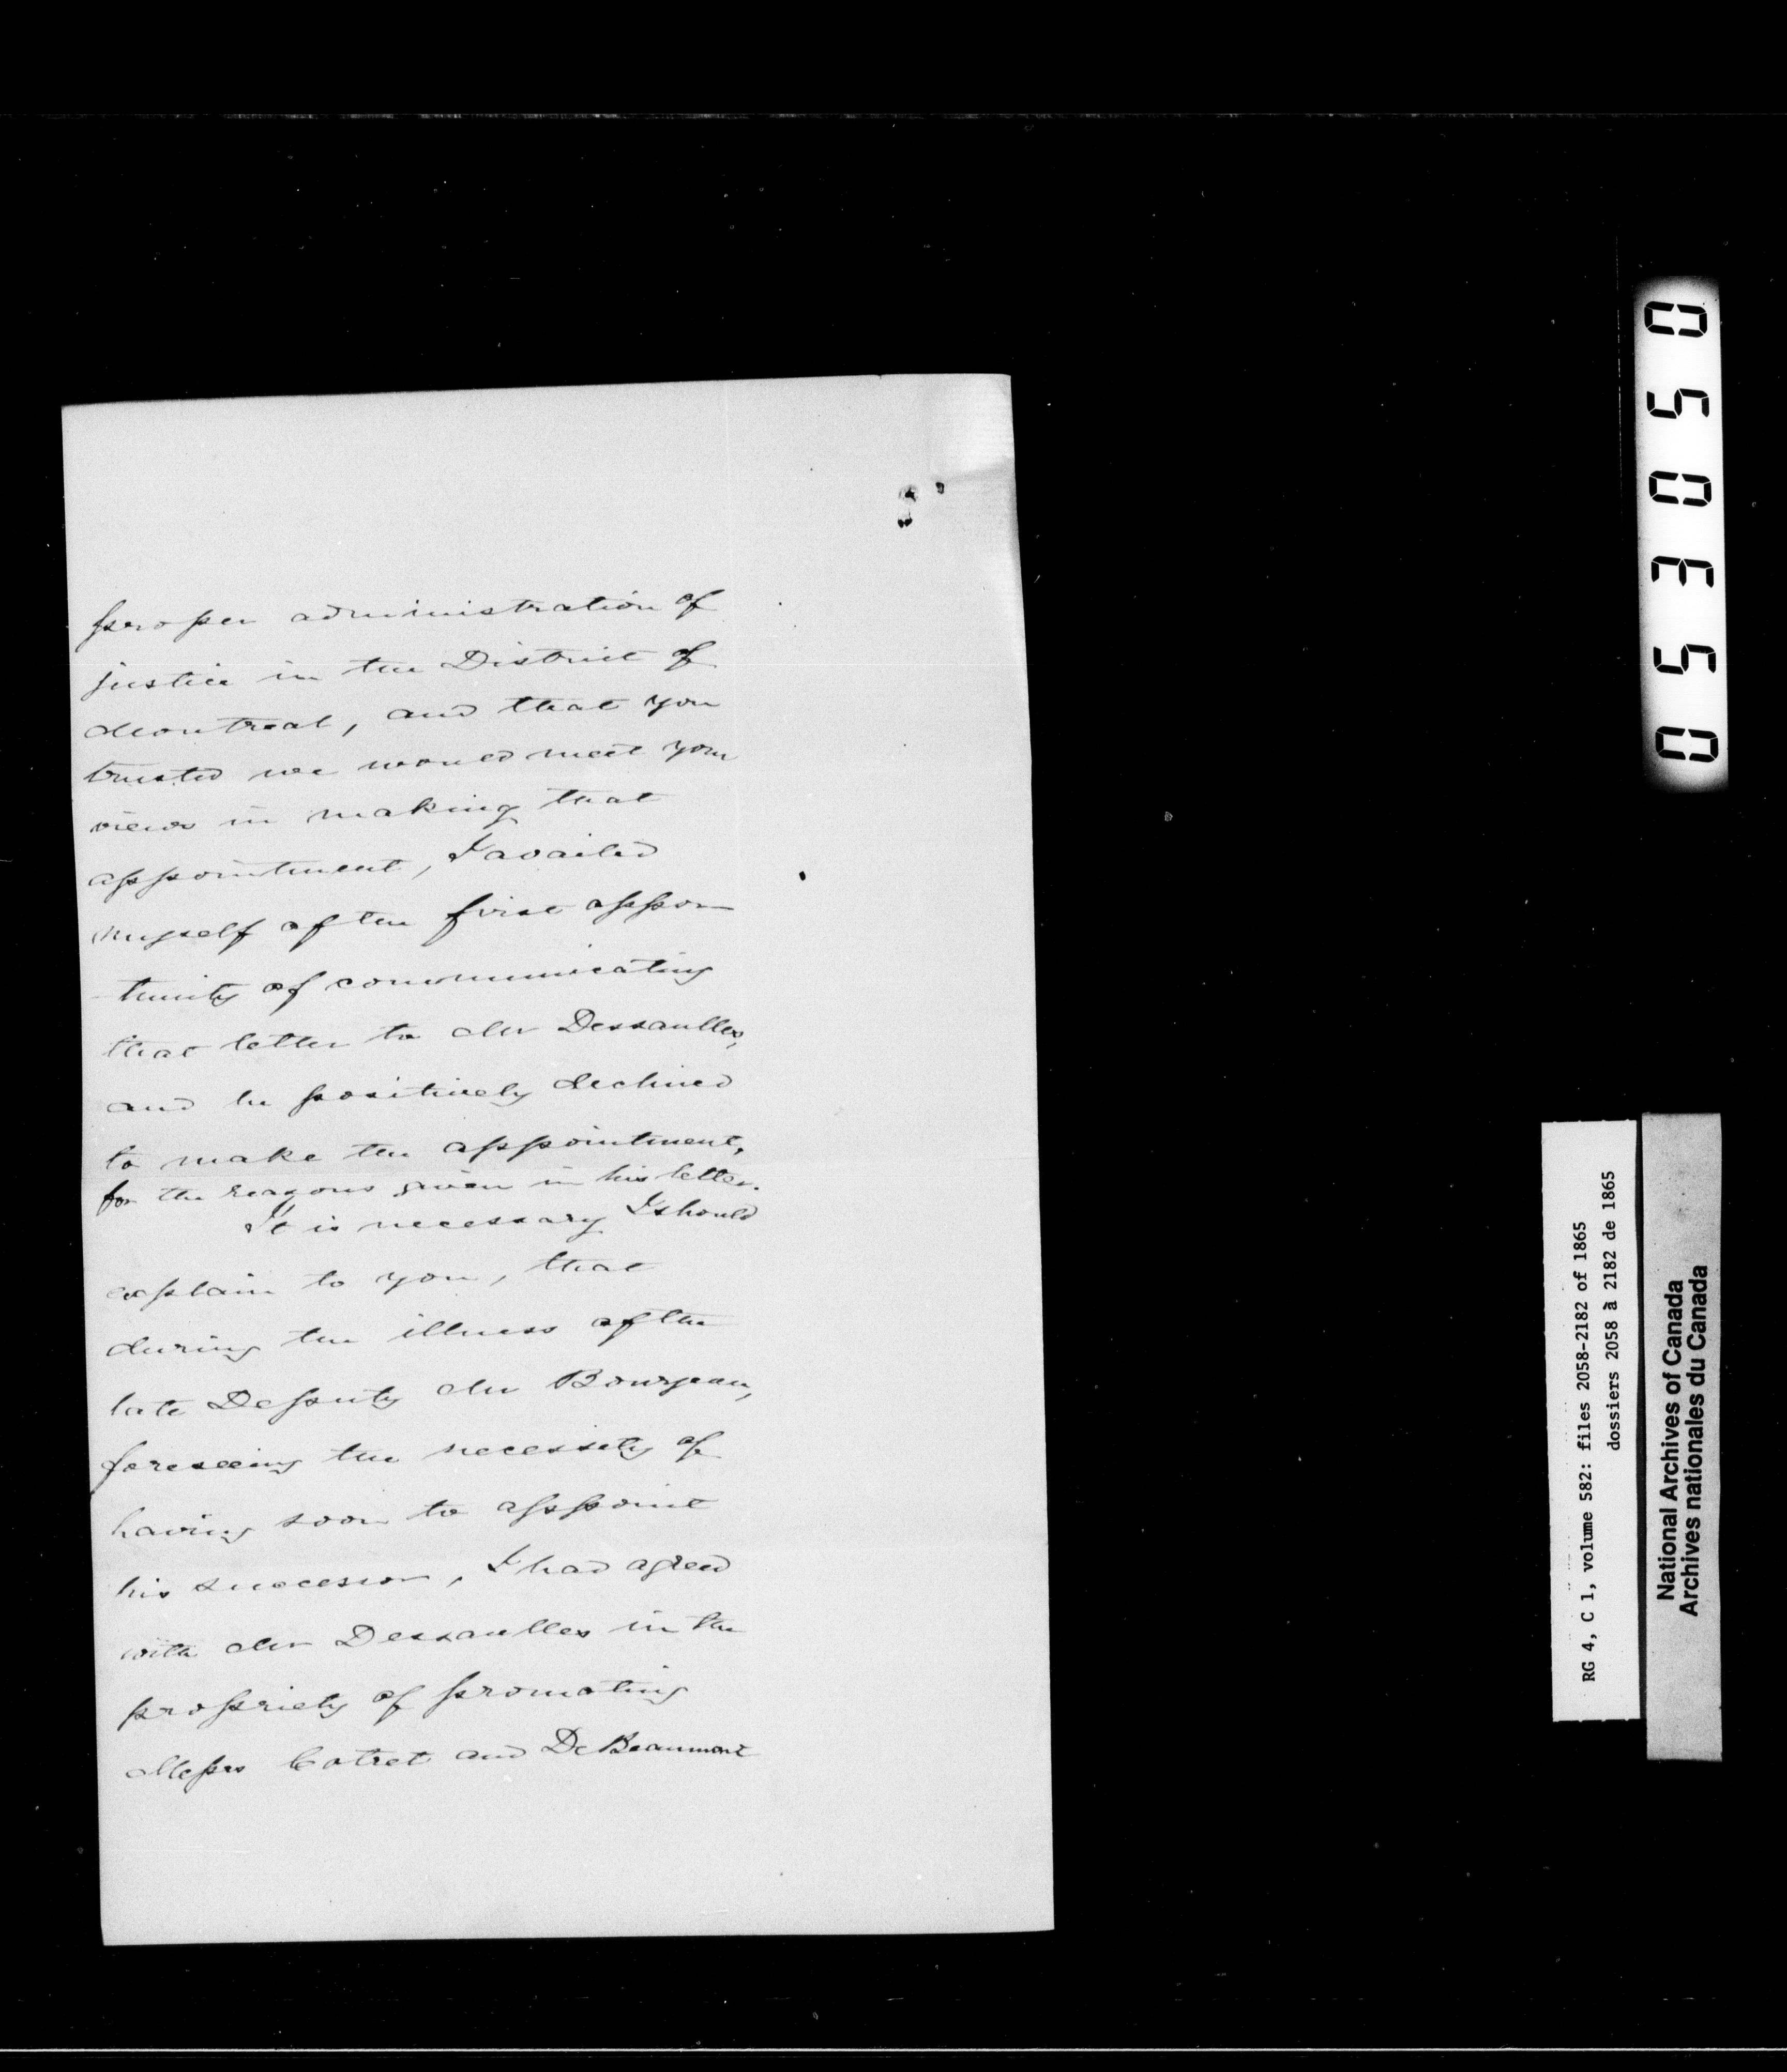 proper administration of
justice in the District of
Montreal, and that you
trusted we would meet your
views in making that
appointment, I availed
myself of the first oppor
tunity of communicating
that letter to Mr Dessaulles,
and he positively declined
to make the appointment,
for the reasons given in his letter.
It is necessary I should
explain to you, that
during the illness of the
late Deputy Mr Bourgeau,
foreseeing the necessity of
having soon to appoint
his successor, I had agreed
with Mr Dessaulles in the
propriety of promoting
Messrs Cotret and De Beaumont
050350
RG 4, C 1, volume 582: files 2058-2182 of 1865
dossiers 2058 à 2182 de 1865
National Archives of Canada
Archives nationales du Canada